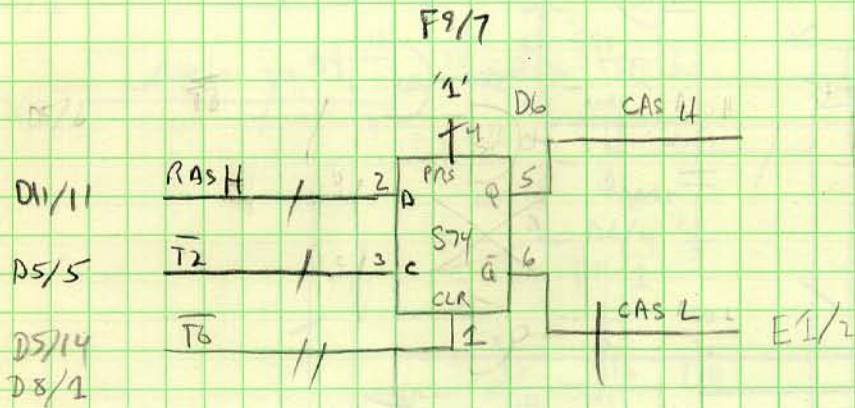 F9/7
'1'
D6 CAS H
4
D11/11 RAS H 2 D PRS Q 5
S74
D5/5 T2 3 C Q 6
CLR
CAS L E1/2
D5/14 T6 1
D8/1